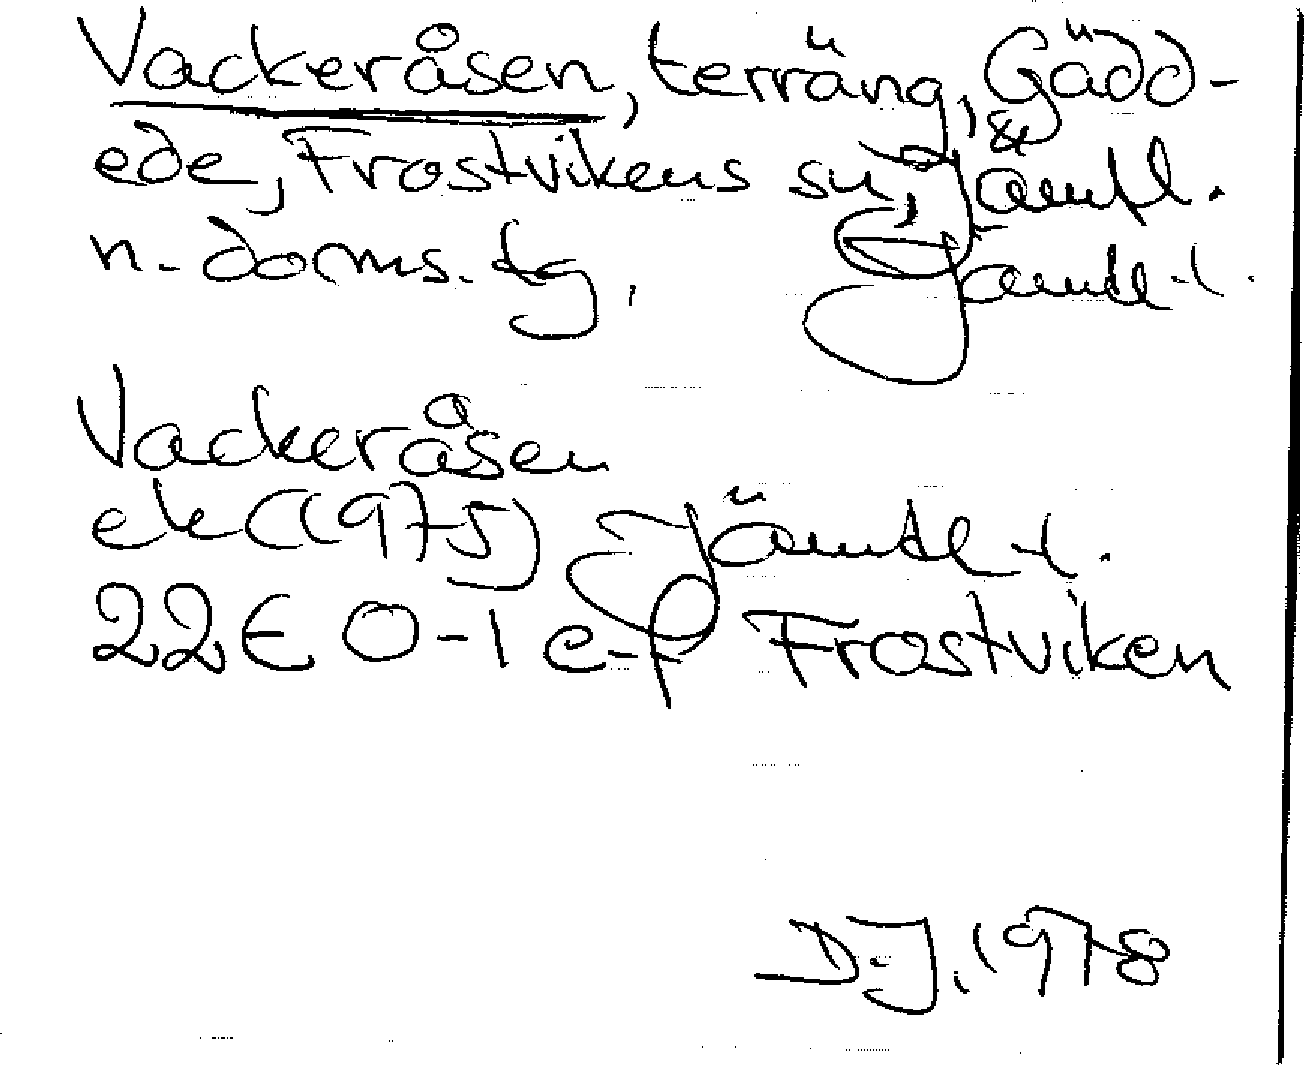 Vackeråsen, terräng, Gädd-
ede, Frostvikens sn, Jämtl.
n. doms. tg, Jämtl. l.
Vackeråsen
ek (1975) Jämtl. l.
22E 0-1 e-f Frostviken
D.J. 1978